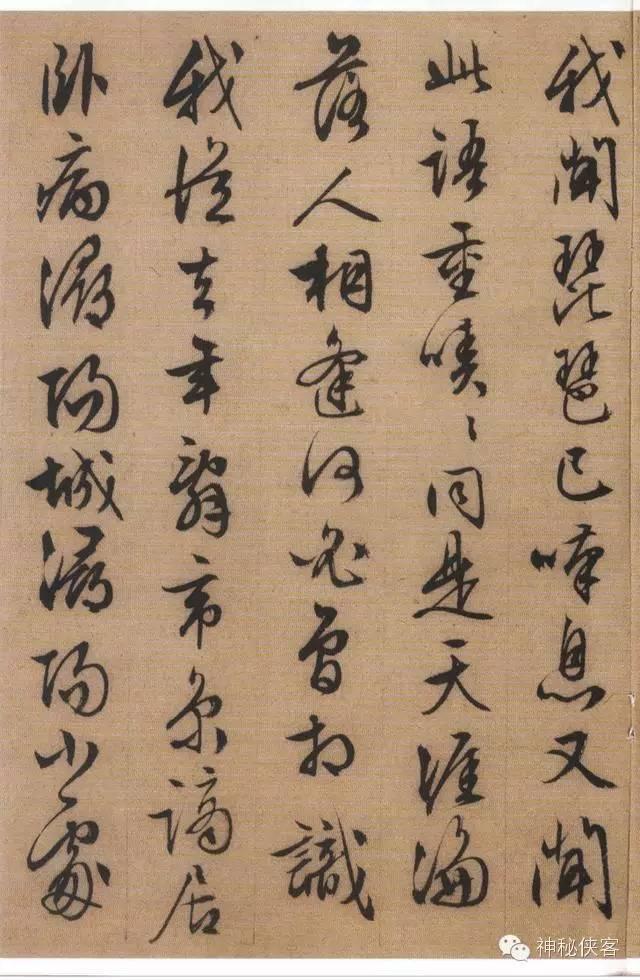 我聞琵琶已嘆息又聞
此語重唧〻同是天涯淪
落人相逢何必曾相識
我從去年辭帝京謫居
卧病潯陽城潯陽小處
神秘侠客